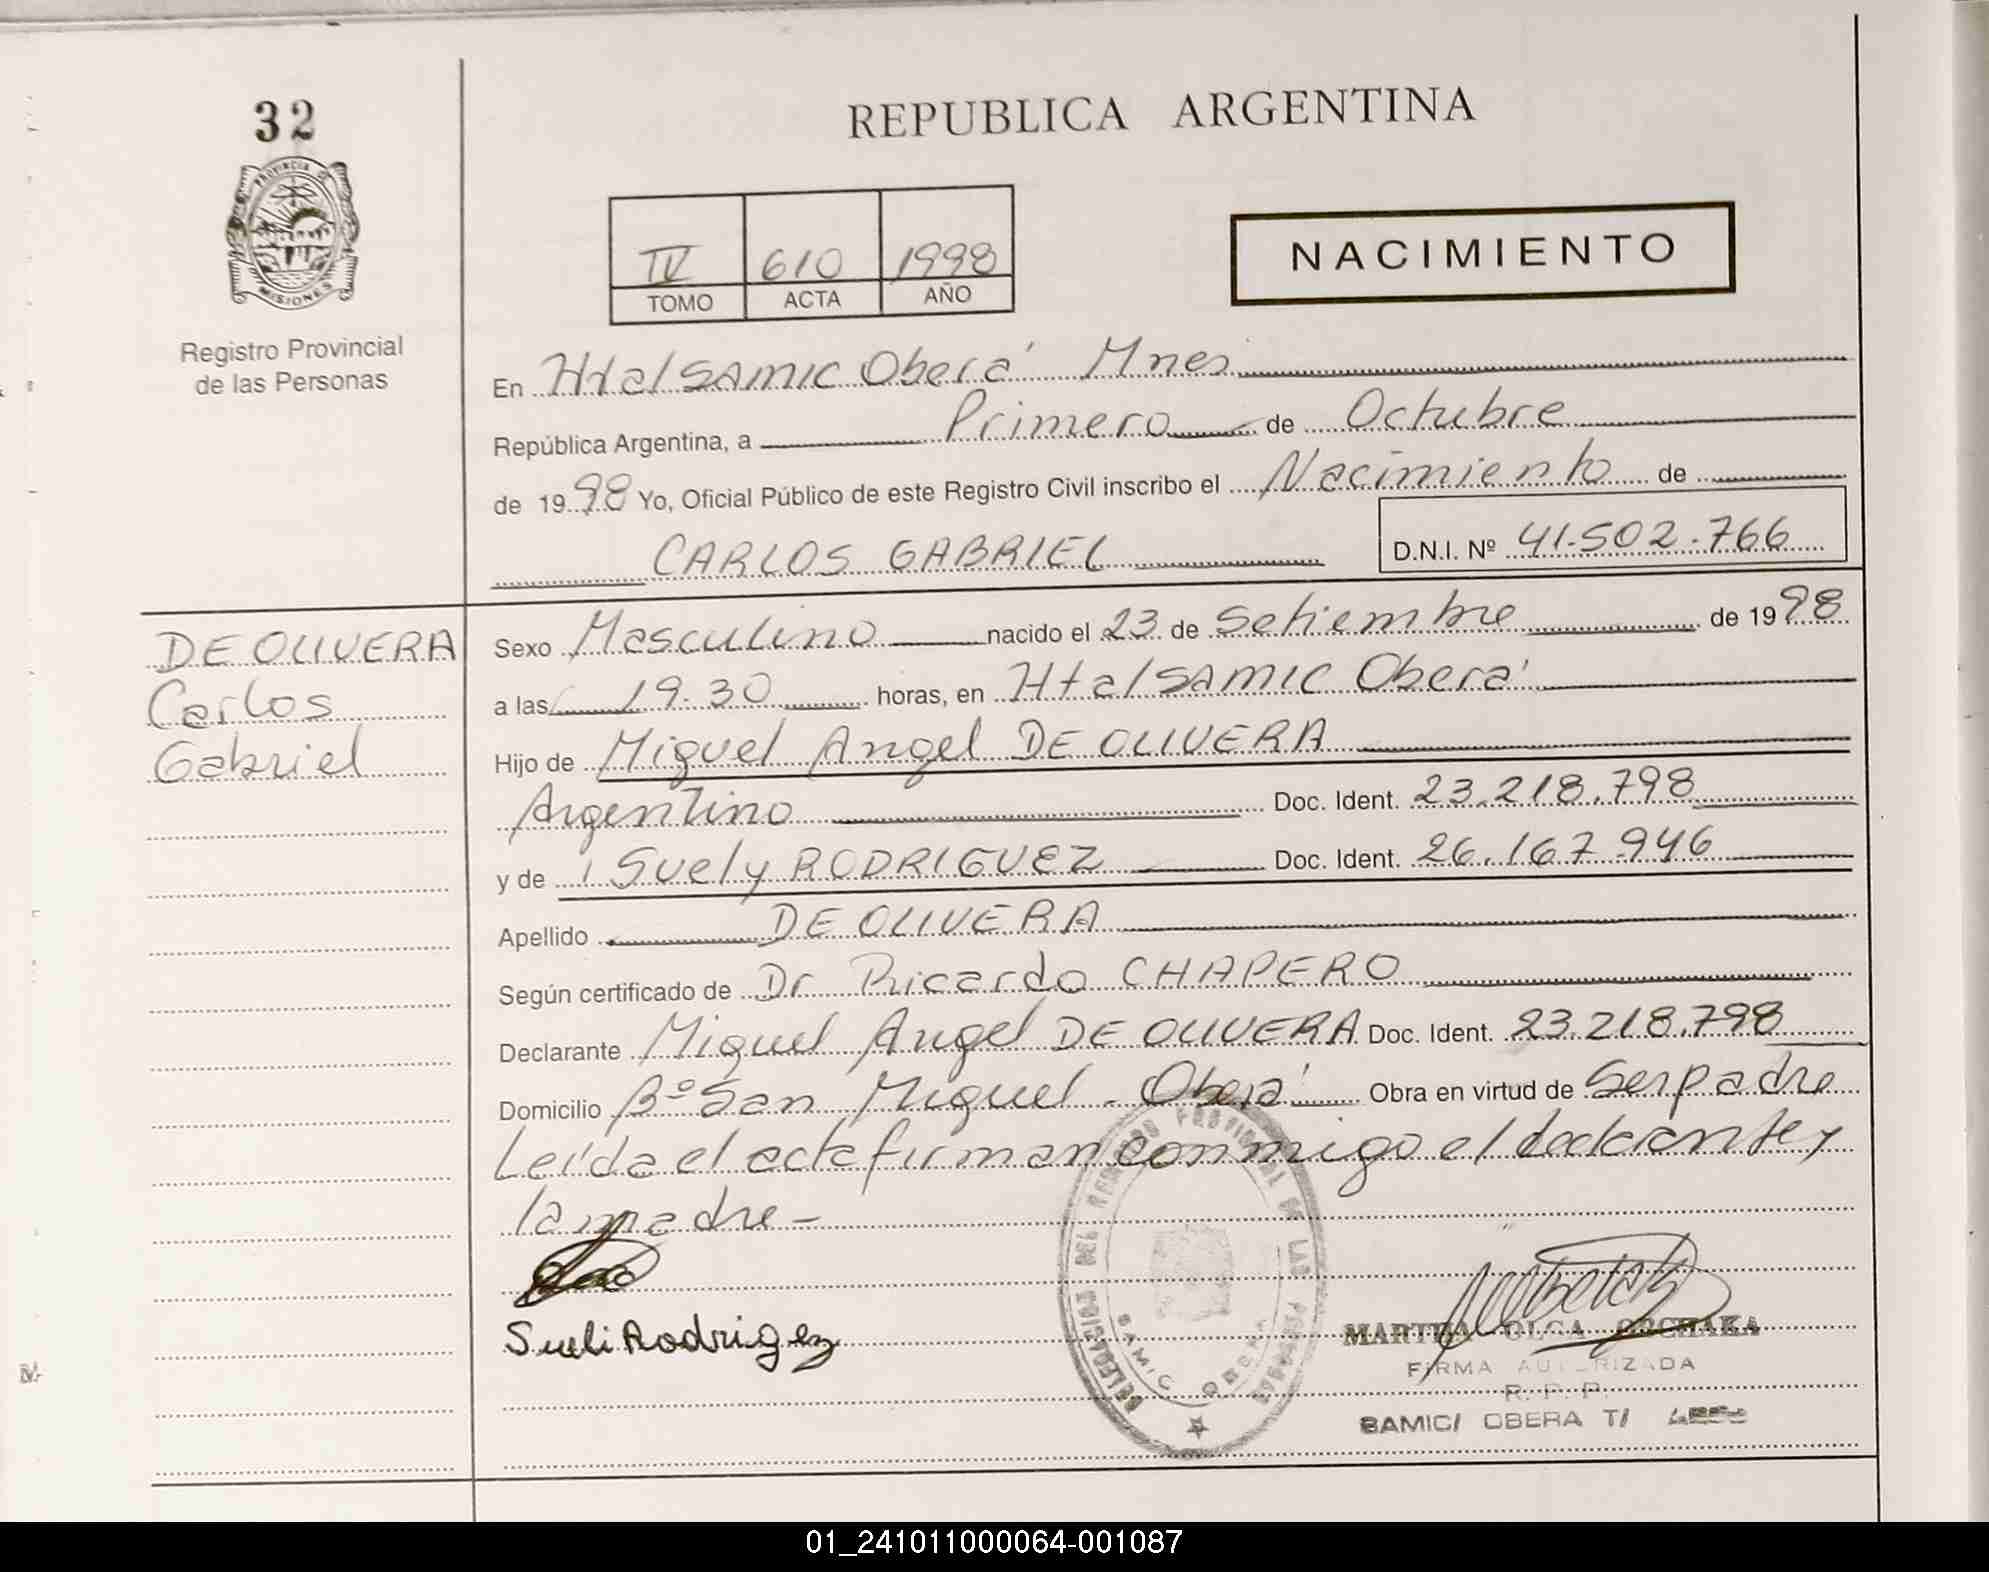 32
PROVINCIA DE
MISIONES
Registro Provincial
de las Personas
REPUBLICA ARGENTINA
IV 610 1998
TOMO ACTA AÑO
NACIMIENTO
En Htal SAMIC Oberá Mnes
República Argentina, a Primero de Octubre
de 1998 Yo, Oficial Público de este Registro Civil inscribo el Nacimiento de
CARLOS GABRIEL D.N.I. Nº 41.502.766
DE OLIVERA
Carlos
Gabriel
Sexo Masculino nacido el 23 de Setiembre de 1998
a las 19.30 horas, en Htal SAMIC Oberá
Hijo de Miguel Angel DE OLIVERA
Argentino Doc. Ident. 23.218.798
y de Suely RODRIGUEZ Doc. Ident. 26.167.946
Apellido DE OLIVERA
Según certificado de Dr Ricardo CHAPERO
Declarante Miguel Angel DE OLIVERA Doc. Ident. 23.218.798
Domicilio Bº San Miguel - Oberá Obra en virtud de Ser padre
Leída el acta firman conmigo el declarante y
la madre -
Sueli Rodrigez
DELEGACION DEL REGISTRO PROVINCIAL DE LAS PERSONAS
SAMIC OBERA
MARTHA OLGA
FIRMA AUTORIZADA
R. P. P.
SAMIC/ OBERA T/
01_241011000064-001087